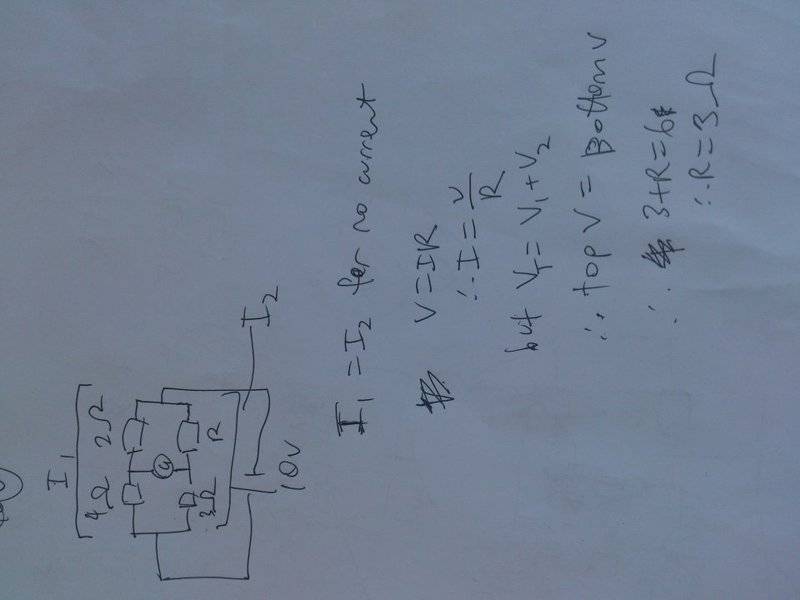 I₁
4Ω 2Ω
G
3Ω R
I₂
10V
I₁ = I₂ for no current
V = IR
∴ I = V/R
but V_T = V₁ + V₂
∴ top V = Bottom V
∴ 3+R=6
∴ R = 3Ω